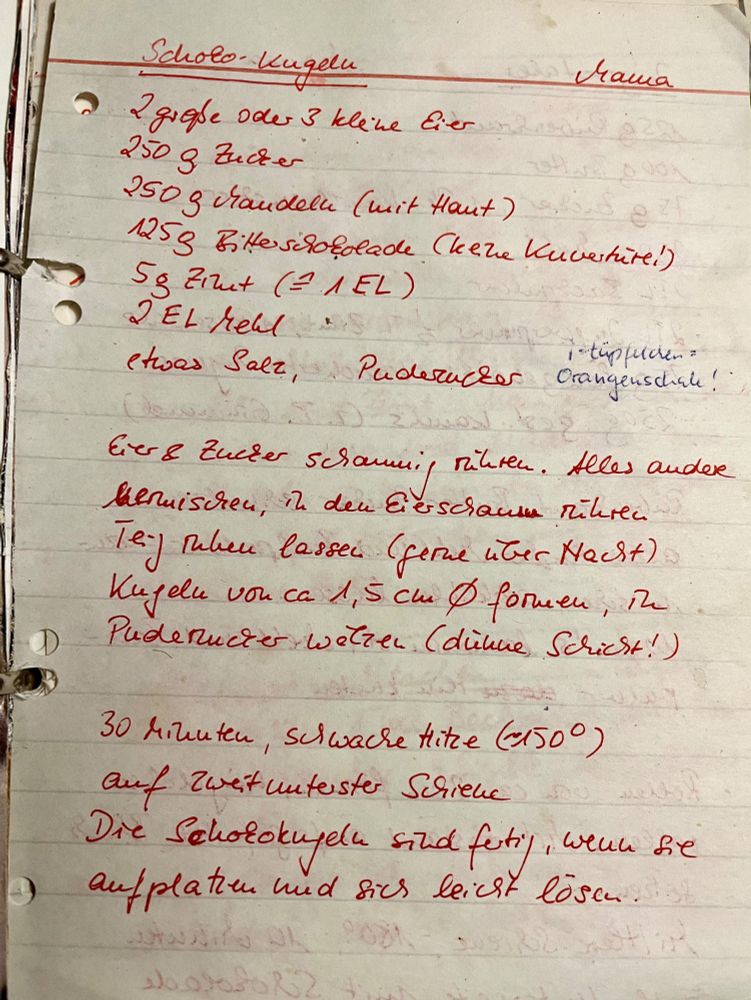 Schoko-Kugeln Mama
2 große oder 3 kleine Eier
250 g Zucker
250 g Mandeln (mit Haut)
125g Bitterschokolade (keine Kuvertüre!)
5g Zimt (≙ 1 EL)
2 EL Mehl
etwas Salz, Puderzucker
i-tüpfelchen =
Orangenschale!
Eier & Zucker schaumig rühren. Alles andere
vermischen, in den Eierschaum rühren
Teig ruhen lassen (gerne über Nacht)
Kugeln von ca 1,5 cm Ø formen, in
Puderzucker wälzen (dünne Schicht!)
30 Minuten, schwache Hitze (~150°)
auf zweitunterster Schiene
Die Schokokugeln sind fertig, wenn sie
aufplatzen und sich leicht lösen.